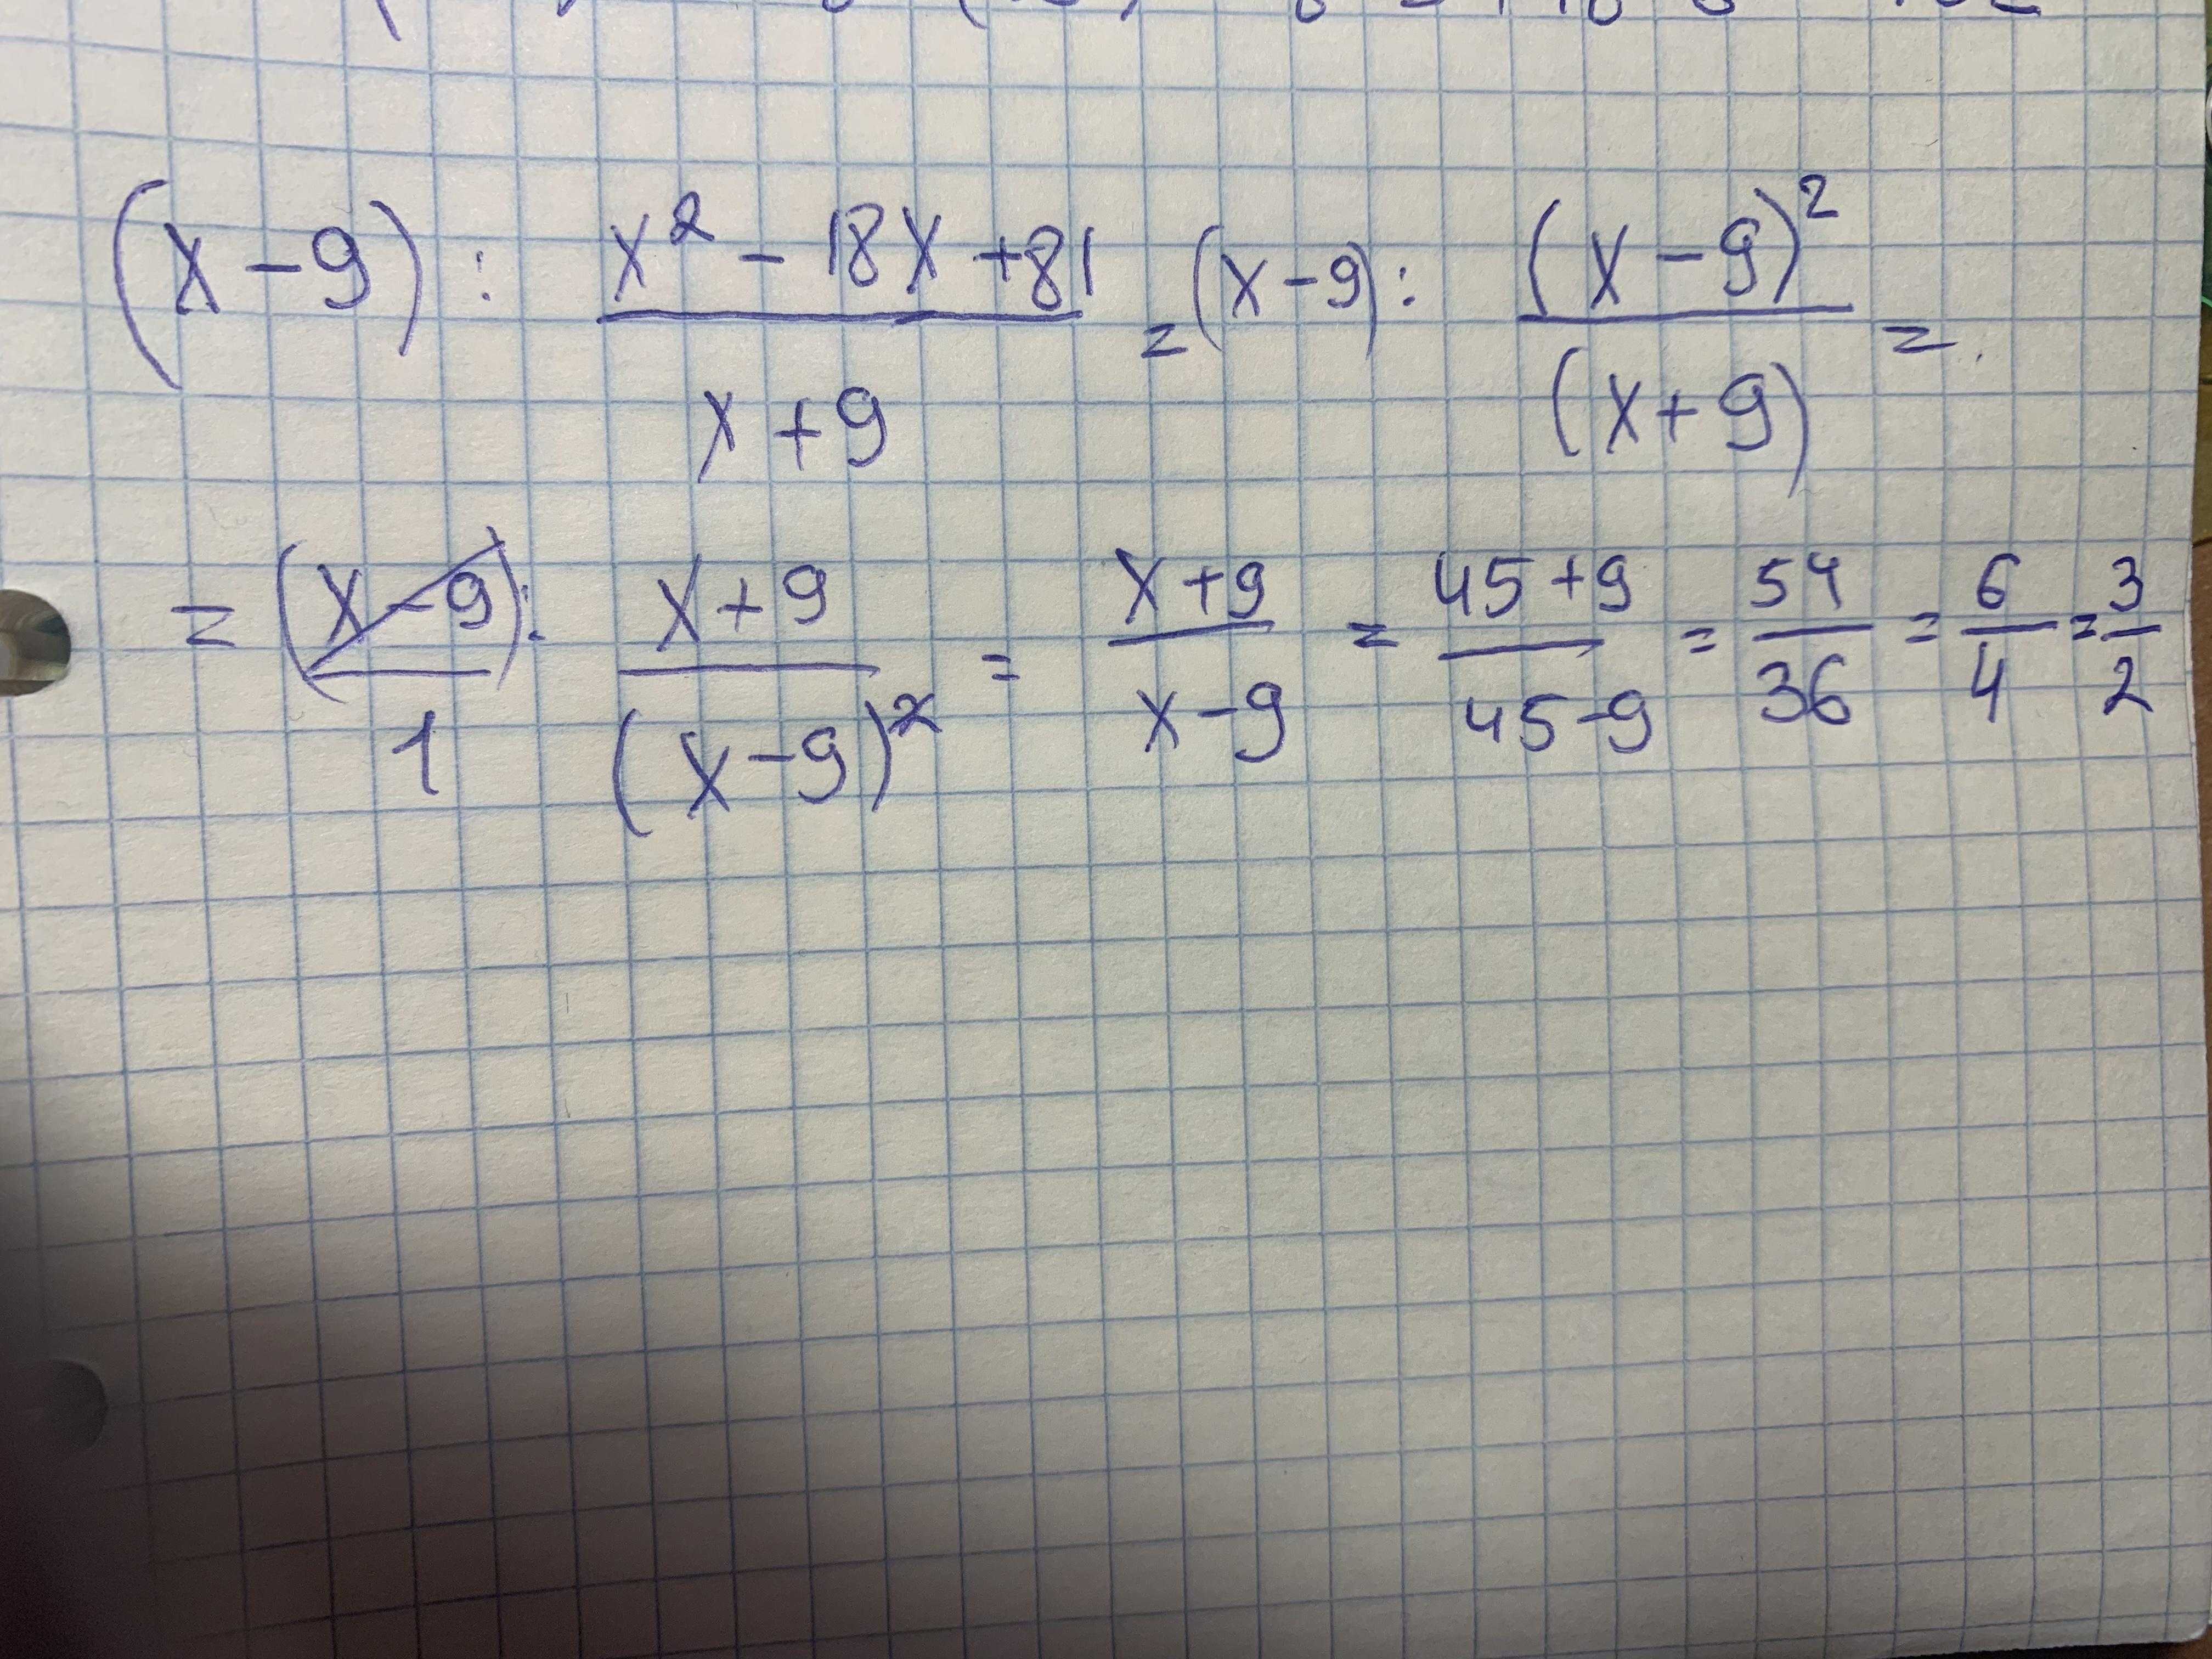 (x-9) : \frac{x^2 - 18x + 81}{x + 9} = (x-9) : \frac{(x-9)^2}{(x+9)} =
= \frac{(x-9)}{1} : \frac{x+9}{(x-9)^2} = \frac{x+9}{x-9} = \frac{45+9}{45-9} = \frac{54}{36} = \frac{6}{4} = \frac{3}{2}